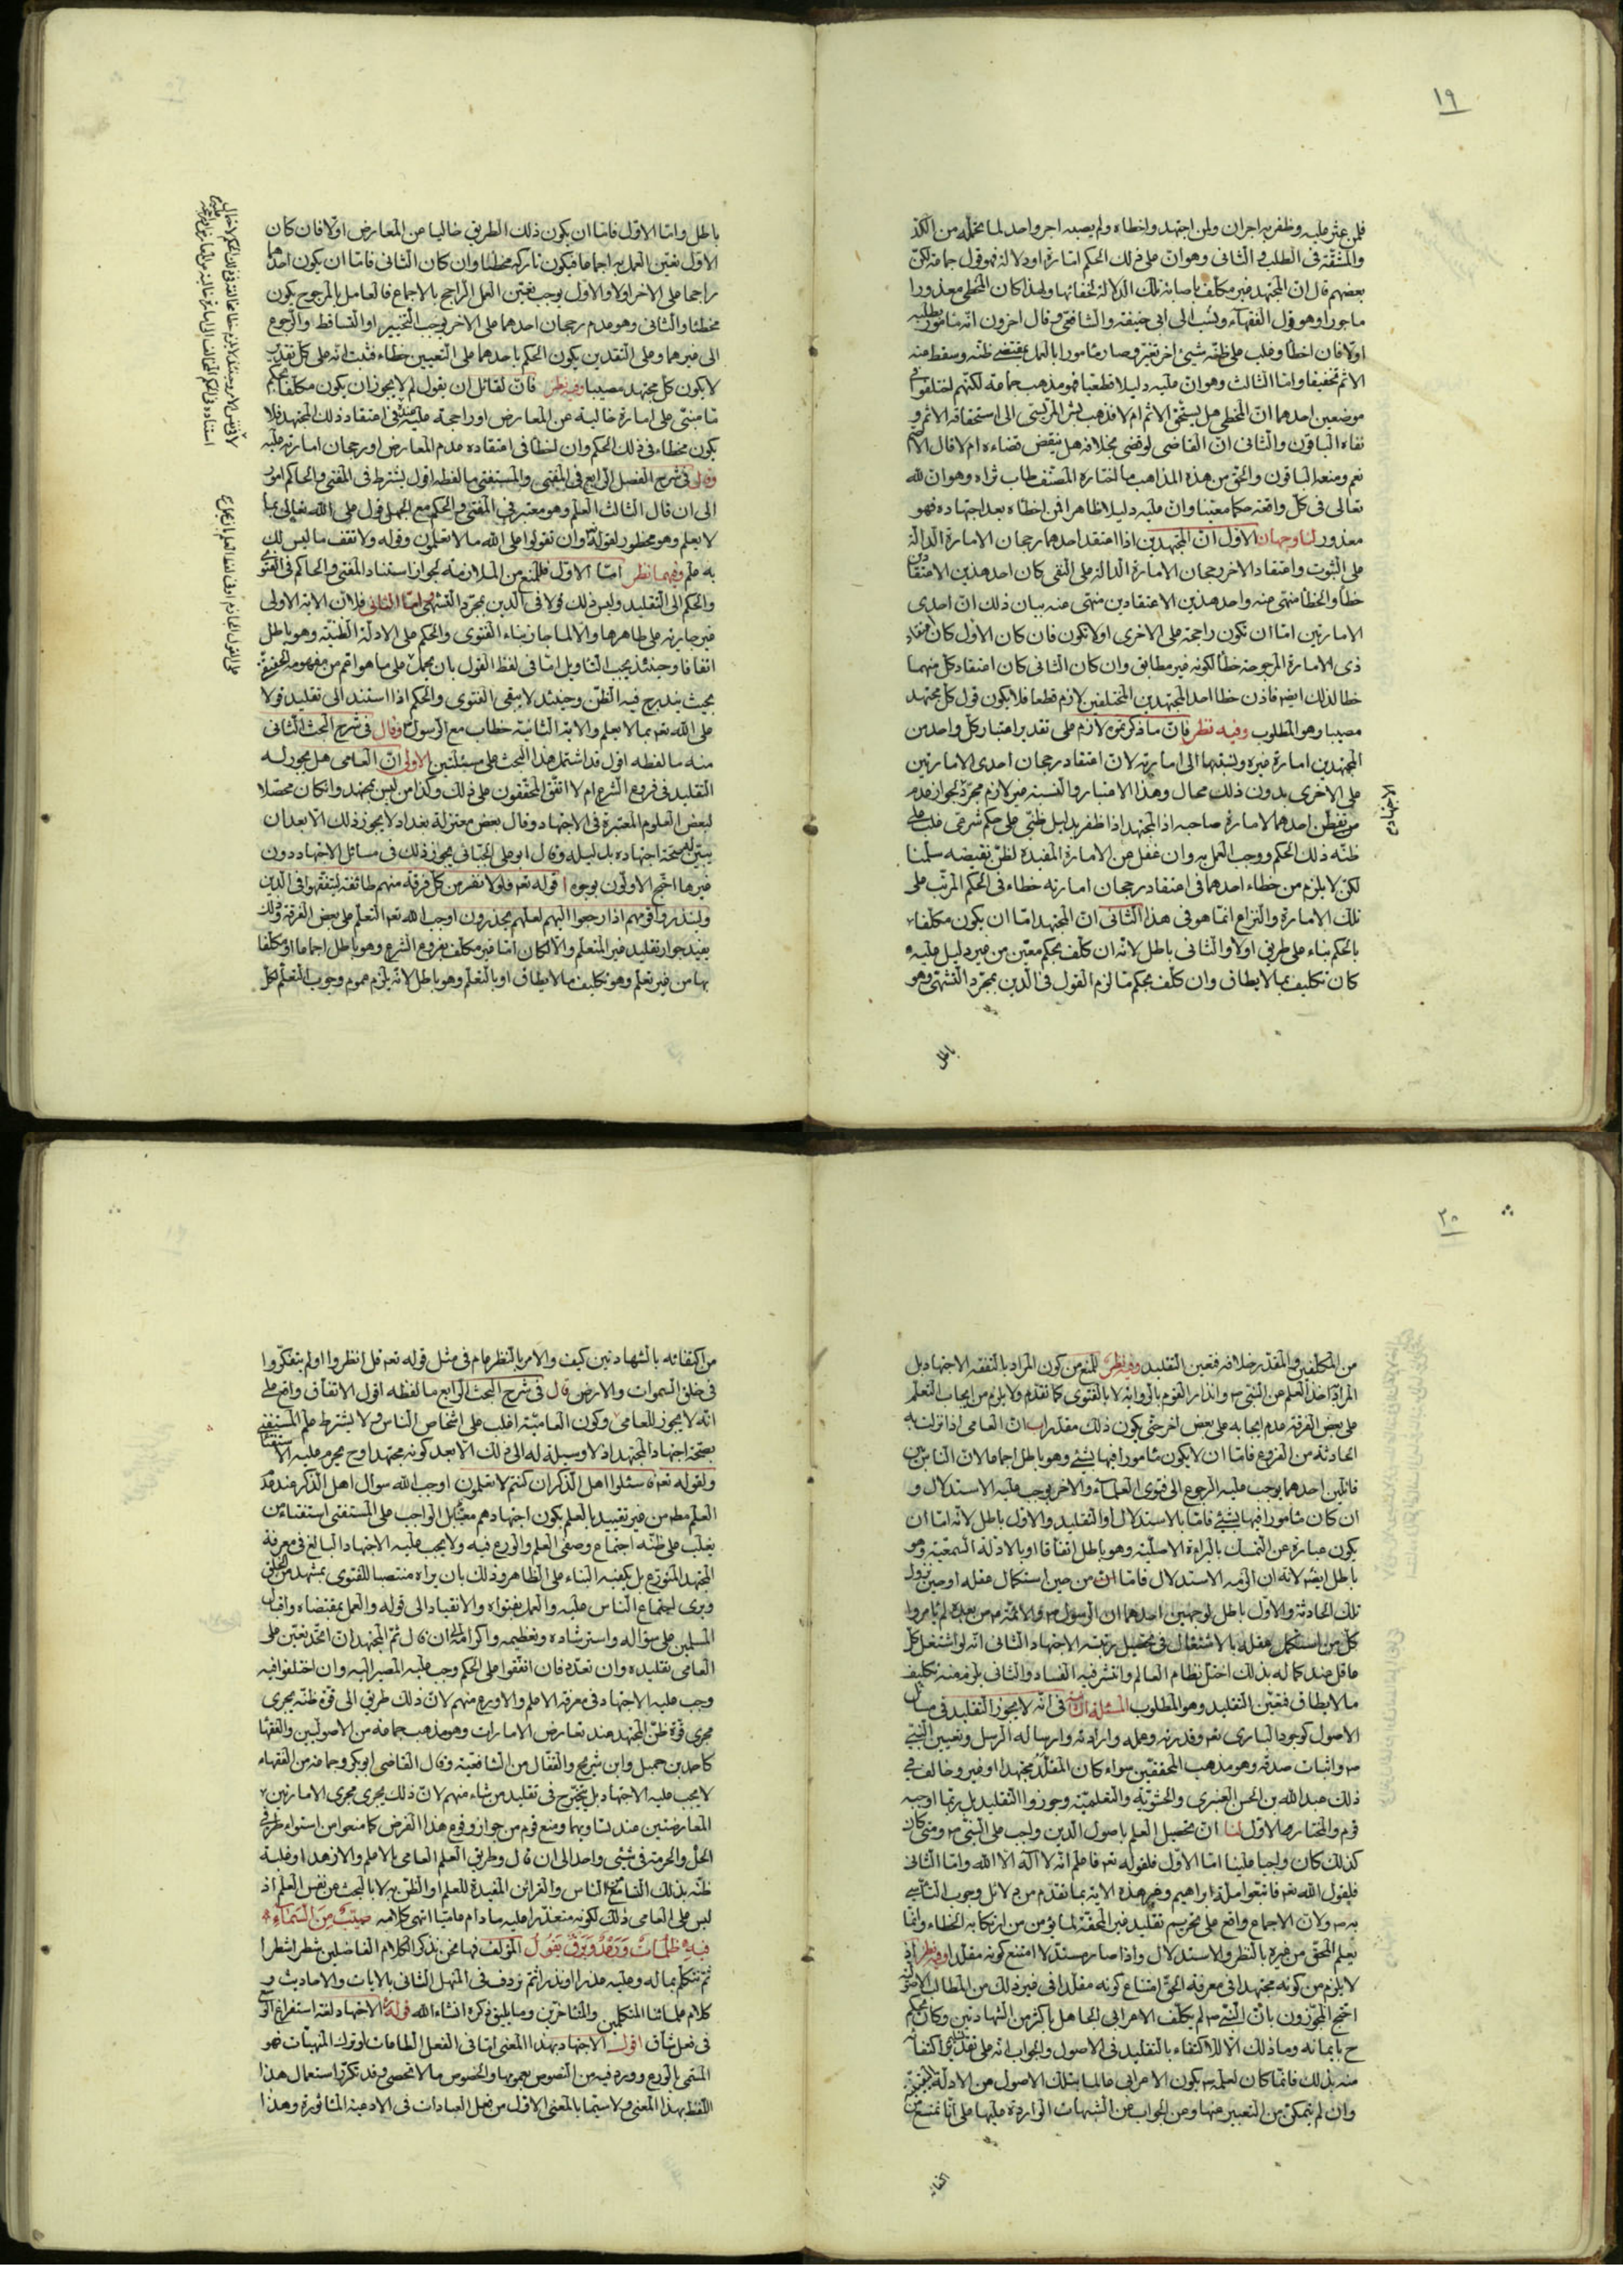 ١٩
فلمن عثر عليه وظفر به اجران ولمن اجتهد واخطاه ولم يصبه اجر واحد لما تحمله من الكد
والمشقة فى الطلب والثانى وهو ان على ذلك الحكم امارة او دلالة فهو قول جماعة لكن
بعضهم قال ان المجتهد غير مكلف باصابة تلك الدلالة لخفائها ولهذا كان المخطى معذورا
ماجورا وهو قول الفقهاء ونسب الى ابى حنيفة والشافعى وقال اخرون انه مامور بطلبه
اولا فان اخطا وغلب على ظنه شيئ اخر تغير وصار مامورا بالعمل بمقتضى ظنه وسقط منه
الاثم تخفيفا واما الثالث وهو ان عليه دليلا قطعيا فهو مذهب جماعة لكنهم اختلفوا فى
موضعين احدهما ان المخطى هل يستحق الاثم ام لا فذهب بشر المريسى الى استحقاقه الاثم و
نفاه الباقون والثانى ان القاضى لو قضى بخلافه هل ينقض قضاءه ام لا قال الاصم
نعم ومنعه الباقون والحق من هذه المذاهب ما اختاره المصنف طاب ثراه وهو ان لله
تعالى فى كل واقعة حكما معينا وان عليه دليلا ظاهرا فمن اخطاه بعد اجتهاده فهو
معذور لنا وجهان الاول ان المجتهدين اذا اعتقد احدهما رجحان الامارة الدالة
على الثبوت واعتقاد الاخر رجحان الامارة الدالة على النفى كان احد هذين الاعتقادين
خطا والخطا منهى عنه واحد هذين الاعتقادين منهى عنه بيان ذلك ان احدى
الامارتين اما ان تكون راجحة على الاخرى او لا تكون فان كان الاول كان اعتقاد
ذى الامارة المرجوحة خطا لكونه غير مطابق وان كان الثانى كان اعتقاد كل منهما
خطا لذلك ايضا فاذن خطا احد المجتهدين المختلفين لازم قطعا فلا يكون قول كل مجتهد
مصيبا وهو المطلوب وفيه نظر فان ما ذكرتموه لازم على تقدير اعتبار كل واحد من
المجتهدين امارة غيره ونسبتها الى امارته لان اعتقاد رجحان احدى الامارتين
على الاخرى بدون ذلك محال وهذا الاعتبار والنسبة غير لازم مجردة لجواز عدم
تفطن احدهما لامارة صاحبه اذ المجتهد اذا ظفر بدليل ظنى على حكم شرعى غلب على
ظنه ذلك الحكم ووجب العمل به وان غفل عن الامارة المفيدة لظن نقيضه سلمنا
لكن لا يلزم من خطاء احدهما فى اعتقاد رجحان امارته خطاء فى الحكم المرتب على
تلك الامارة والنزاع انما هو فى هذا الثانى ان المجتهد اما ان يكون مكلفا
بالحكم بناء على طريق اولا والثانى باطل لانه ان كلف بحكم معين من غير دليل عليه
كان تكليف بما لا يطاق وان كلف بحكم ما لزم القول فى الدين بمجرد التشهى وهو
باطل
باطل واما الاول فاما ان يكون ذلك الطريق خاليا عن المعارض اولا فان كان
الاول تعين العمل به اجماعا فيكون تاركه مخطئا وان كان الثانى فاما ان يكون احدهما
راجحا على الاخر اولا والاول يوجب تعين العمل الراجح بالاجماع فالعامل بالمرجوح يكون
مخطئا والثانى وهو عدم رجحان احدهما على الاخر يوجب التخيير او التساقط والرجوع
الى غيرهما وعلى التقدين يكون الحكم باحدهما على التعيين خطاء فثبت انه على كل تقدير
لا يكون كل مجتهد مصيبا وفيه نظر فان لقائل ان يقول لم لا يجوز ان يكون مكلفا بحكم
ما مبنى على امارة خالية عن المعارض او راجحة عليه فى اعتقاد ذلك المجتهد فلا
يكون مخطاء فى ذلك الحكم وان اخطا فى اعتقاده عدم المعارض او رجحان امارته عليه
وقال فى شرح الفصل الرابع فى المفتى والمستفتى ما لفظه اقول يشترط فى المفتى والحاكم امور
الى ان قال الثالث العلم وهو معتبر فى المفتى والحكم مع الجهل قول على الله تعالى بما
لا يعلم وهو محظور لقوله تع وان تقولوا على الله ما لا تعلمون وقوله ولا تقف ما ليس لك
به علم وفيهما نظر اما الاول فللمنع من الملازمة لجواز استناد المفتى والحاكم فى الفتوى
والحكم الى التقليد وليس ذلك قولا فى الدين بمجرد التشهى واما الثانى فلان الاية الاولى
غير جارية على ظاهرها والا لما جاز بناء الفتوى والحكم على الادلة الظنية وهو باطل
اتفاقا وحينئذ يجب التاويل اما فى لفظ القول بان يحمل على ما هو اعم من مفهومه
بحيث يندرج فيه الظن وحينئذ لا يبقى الفتوى والحكم اذا استند الى تقليد قولا
على الله تع بما لا يعلم والاية الثانية خطاب مع الرسول ص وقال فى شرح البحث الثانى
منه ما لفظه اقول قد اشتمل هذا البحث على مسئلتين الاولى ان العامى هل يجوز له
التقليد فى فروع الشرع ام لا اتفق المحققون على ذلك وكذا من ليس بمجتهد وان كان محصلا
لبعض العلوم المعتبرة فى الاجتهاد وقال بعض معتزلة بغداد لا يجوز ذلك الا بعد ان
يبين له صحة اجتهاده بدليله وقال ابو على الجبائى يجوز ذلك فى مسائل الاجتهاد دون
غيرها احتج الاولون بوجوه ا قوله تع فلولا نفر من كل فرقة منهم طائفة ليتفقهوا فى الدين
ولينذروا قومهم اذا رجعوا اليهم لعلهم يحذرون اوجب الله تع التعلم على بعض الفرقة وذلك
يفيد جواز تقليد غير المتعلم والا لكان اما غير مكلف بفروع الشرع وهو باطل اجماعا او مكلفا
بها من غير تعلم وهو تكليف ما لا يطاق او بالتعلم وهو باطل لانه يلزم عموم وجوب التعلم لكل
٢٠
من المكلفين والمقدر خلافه فتعين التقليد وفيه نظر للمنع من كون المراد بالتفقه الاجتهاد بل
المراد اخذ العلم من النبى ص وانذار القوم بالرواية لا بالفتوى كما تقدم ولا يلزم من ايجاب التعلم
على بعض الفرقة عدم ايجابه على بعض اخر حتى يكون ذلك مقدرا ب ان العامى اذا نزلت به
الحادثة من الفروع فاما ان لا يكون مامورا فيها بشيئ وهو باطل اجماعا لان الناس بين
قائلين احدهما يوجب عليه الرجوع الى فتوى العلماء والاخر يوجب عليه الاستدلال و
ان كان مامورا فيها بشيئ فاما بالاستدلال او التقليد والاول باطل لانه اما ان
يكون عبارة عن التمسك بالبراءة الاصلية وهو باطل اتفاقا او بالادلة السمعية وهو
باطل ايضا لانه ان الزمه الاستدلال فاما ان من حين استكمال عقله او حين نزول
تلك الحادثة والاول باطل لوجهين احدهما ان الرسول ص والائمة ع من بعده لم يامروا
كل من استكمل عقله بالاشتغال فى تحصيل رتبة الاجتهاد الثانى انه لو اشتغل كل
عاقل عند كماله بذلك اختل نظام العالم وانتشر فيه الفساد والثانى يلزم منه تكليف
ما لا يطاق فتعين التقليد وهو المطلوب المسئلة الثانية فى انه لا يجوز التقليد فى مسائل
الاصول كوجود البارى تع وقدرته وعلمه وارادته وارساله الرسل وتعيين النبى
ص واثبات صدقه وهو مذهب المحققين سواء كان المقلد مجتهدا او غيره وخالف فى
ذلك عبد الله بن الحسن العنبرى والحشوية والتعليمية وجوزوا التقليد بل ربما اوجبه
قوم والمختار هو الاول لنا ان تحصيل العلم باصول الدين واجب على النبى ص ومتى كان
كذلك كان واجبا علينا اما الاول فلقوله تع فاعلم انه لا اله الا الله واما الثانى
فلقول الله تع فاتبعوا ملة ابراهيم وغير هذه الاية بما تقدم من دلائل وجوب التاسى
به ص ولان الاجماع واقع على تحريم تقليد غير المحق لما يؤمن من ارتكابه الخطاء وانما
يعلم المحق من غيره بالنظر والاستدلال واذا صار مستدلا امتنع كونه مقلدا وفيه نظر اذ
لا يلزم من كونه مجتهدا فى معرفة الحق امتناع كونه مقلدا فى غير ذلك من المطالب الاصولية
احتج المجوزون بان النبى ص لم يكلف الاعرابى الجاهل باكثر من الشهادتين وكان يحكم
ح بايمانه وما ذلك الا للاكتفاء بالتقليد فى الاصول والجواب انه على تقدير اكتفائه
منه بذلك فانما كان لعلمه ص بكون الاعرابى عالما بتلك الاصول من الادلة
وان لم يتمكن من التعبير عنها وعن الجواب عن الشبهات الواردة عليها على انا نمنع
من اكتفائه بالشهادتين كيف والامر بالنظر عام فى مثل قوله تع قل انظروا اولم يتفكروا
فى خلق السموات والارض قال فى شرح البحث الرابع ما لفظه اقول الاتفاق واقع على
انه لا يجوز للعامى وكون العامية اغلب على اشخاص الناس ولا يشترط علم المستفتى
بصحة اجتهاد المجتهد اذ لا وسيلة له الى ذلك الا بعد كونه مجتهدا وح يحرم عليه الاستفتاء
ولقوله تع فاسئلوا اهل الذكر ان كنتم لا تعلمون اوجب الله سوال اهل الذكر عند عدم
العلم مطلقا من غير تقييد بالعلم بكون اجتهادهم معتبرا بل الواجب على المستفتى استفتاء من
يغلب على ظنه اجتماع وصفى العلم والورع فيه ولا يجب عليه الاجتهاد البالغ فى معرفة
المجتهد المتورع بل يكفيه البناء على الظاهر وذلك بان يراه منتصبا للفتوى بمشهد من الخلق
ويرى اجتماع الناس عليه والعمل بفتواه والانقياد الى قوله والعمل بمقتضاه واقبال
المسلمين على سؤاله واسترشاده وتعظيمه واكرامه الى ان قال ثم المجتهد ان اتحد تعين على
العامى تقليده وان تعدد فان اتفقوا على الحكم وجب عليه المصير اليه وان اختلفوا فيه
وجب عليه الاجتهاد فى معرفة الاعلم والاورع منهم لان ذلك طريق الى قوة ظنه يجرى
مجرى قوة ظن المجتهد عند تعارض الامارات وهو مذهب جماعة من الاصوليين والفقها
كاحمد بن حنبل وابن شريح والقفال من الشافعية وقال القاضى ابو بكر وجماعة من الفقهاء
لا يجب عليه الاجتهاد بل يتخير فى تقليد من شاء منهم لان ذلك يجرى مجرى الامارتين
المعارضتين عند تساويهما ومنع قوم من جواز وقوع هذا الفرض كما منعوا من استواء طرفى
الحل والحرمة فى شيئ واحد الى ان قال وطريق العلم العامى بالاعلم والازهد او غلبة
ظنه بذلك التسامع من الناس والقرائن المفيدة للعلم او الظن به لا بالبحث عن نفس العلم اذ
ليس على العامى ذلك لكونه متعذرا عليه ما دام عاميا انتهى كلامه صيب من السماء
فيه ظلمات ورعد وبرق يقول المؤلف فها نحن نذكر الكلام الفاضلين شطرا شطرا
ثم نتكلم بما له وعليه عذرا او نذرا ثم نردف فى المنهل الثانى بالايات والاحاديث و
كلام علمائنا المتكلمين والمتاخرين وما يليق ذكره انشاء الله قوله الاجتهاد لغة استفراغ الوسع
فى فعل شاق اقول الاجتهاد بهذا المعنى اما فى الفعل الطاعات او ترك المنهيات فهو
المسمى بالورع وورد فيه من النصوص بعمومها والخصوص ما لا تحصى وقد تكرر استعمال هذا
اللفظ بهذا المعنى ولا سيما بالمعنى الاول من فعل العبادات فى الادعية المأثورة وهذا